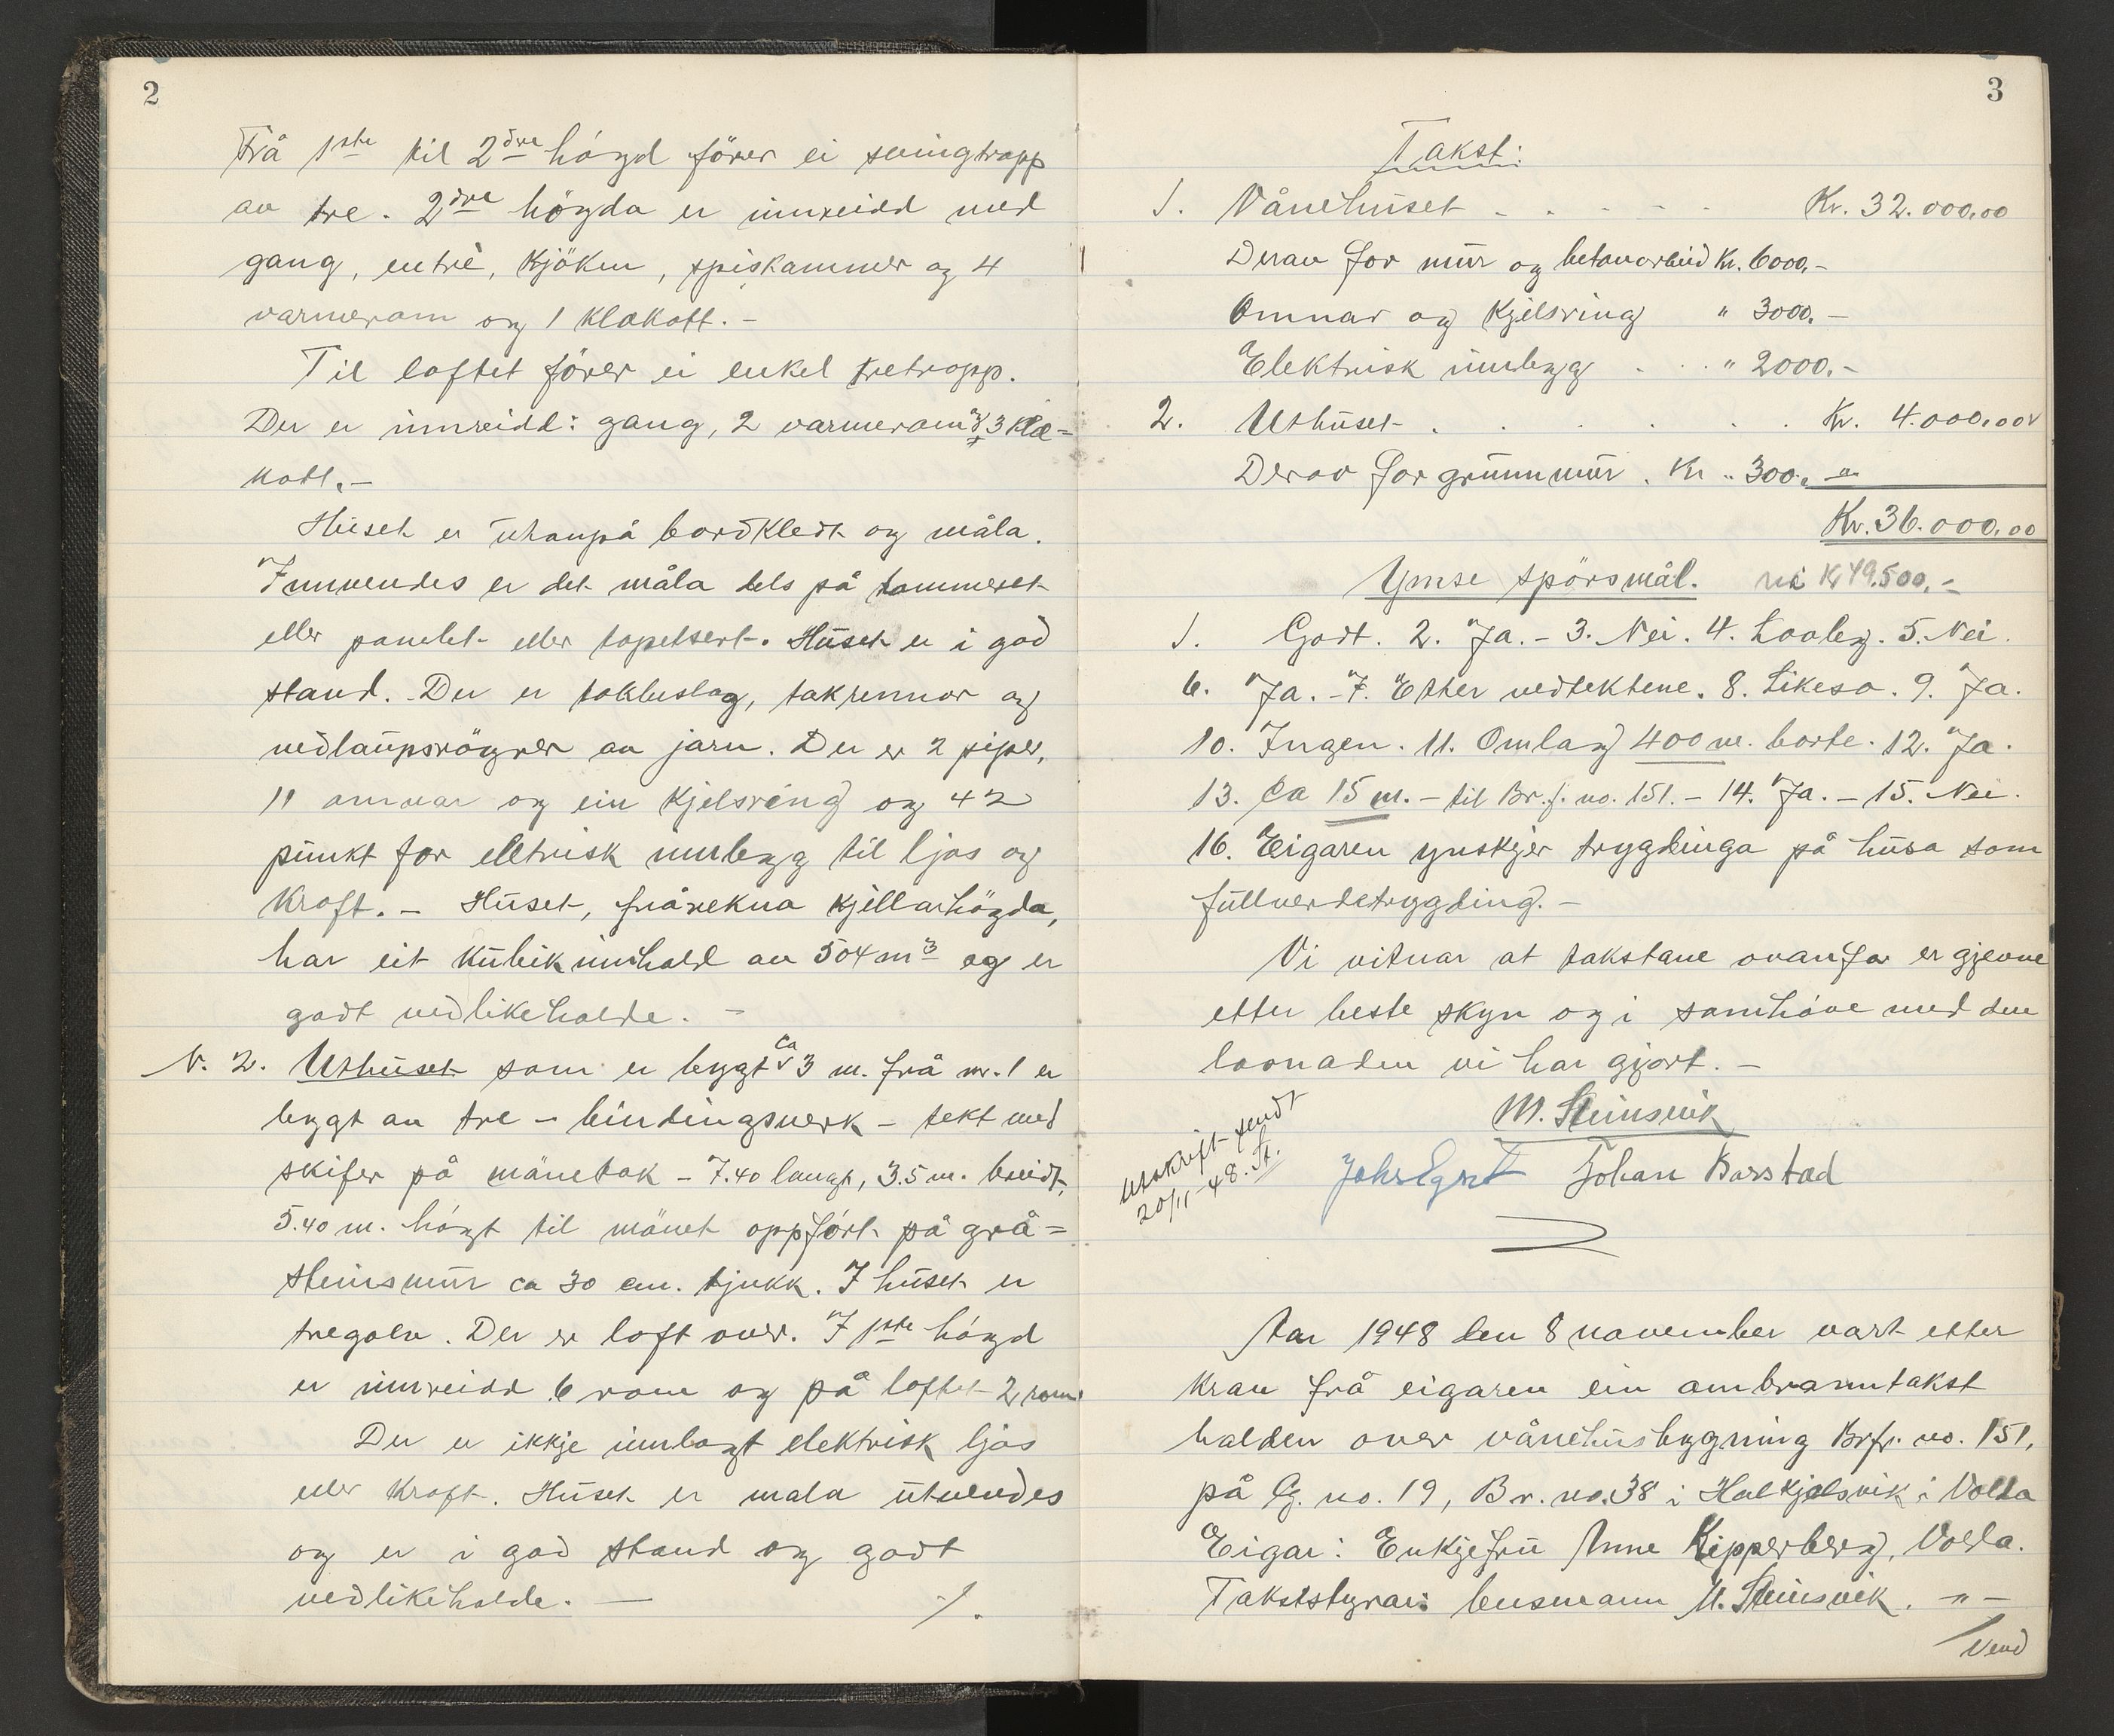 2
Frå 1ste til 2dre högd förer ei svingtrapp
av tre. 2dre högda er innreidd med
gang, entrè, kjöken, spiskammer og 4
varmerom og 1 klakott. -
Til loftet förer ei enkel tretrapp.
Der er innreidd: gang, 2 varmerom og 3 kla=
kott. -
Huset er utanpå bordkledt og måla.
Innvendes er det måla dels på tømmeret
eller panelet eller tapetsert. Huset er i god
stand. Der er takbeslag, takrennor og
nedlaupsrögrer av jarn. Der er 2 piper,
11 omnar og ein kjelsring og 42
punkt for elktrisk innlegg til ljos og
kraft. - Huset, frårekna kjellarhögda,
har eit kubikinnhold av 504 m3 og er
godt vedlikeholde. -
N. 2. Uthuset som er bygt ca 3 m. frå nr. 1 er
bygt av tre - bindingsverk - tekt med
skifer på mönetak - 7.40 langt, 3.5 m. breidt,
5.40 m. högt til mönet oppfört på grå=
steinsmur ca 30 cm. tjukk. I huset er
tregolv. Der er loft over. I 1ste högd
er innreidd 6 rom og på loftet 2 rom.
Der er ikkje innlagt elektrisk ljos
eller kraft. Huset er mala utvendes
og er i god stand og godt
vedlikeholde. - ⁒
3
Takst:
1. Vånehuset - - - - - Kr. 32.000.00
Derav for mur og betonarbeid Kr. 6000,-
Omnar og kjelsring " 3000.-
Elektrisk innlegg . . . " 2000.-
2. Uthuset . . . . . . Kr. 4.000.00
Derav for grunnmur . Kr .. 300. -
Kr. 36.000.00
Ymse spörsmål. Kr 49.500.-
1. Godt. 2. Ja. - 3. Nei. 4. Lovleg. 5. Nei.
6. Ja. - 7. Etter vedtektene. 8. Likeso. 9. Ja.
10. Ingen. 11. Omlag 400 m. borte. 12. Ja.
13. Ca 15 m. - til Br.f. no. 151. - 14. Ja. - 15. Nei.
16. Eigaren ynskjer trygdinga på husa som
fullverdetrygding. -
Vi vitnar at takstane ovanfor er gjevne
etter beste skyn og i samhöve med den
lovnaden vi har gjort. -
M. Steinsvik
Johan Barstad
Utskrift sendt
20/11-48. St.
Aar 1948 den 8 november vart etter
krav frå eigaren ein ombranntakst
halden over vånehusbygning Brfr. no. 151,
på G. no. 19, Br. no. 38 i Halkjelsvik i Volda
Eigar: Enkjefru Anne Kipperberg, Volda.
Takststyrar: lensmann M. Steinsvik. - " -
Vend